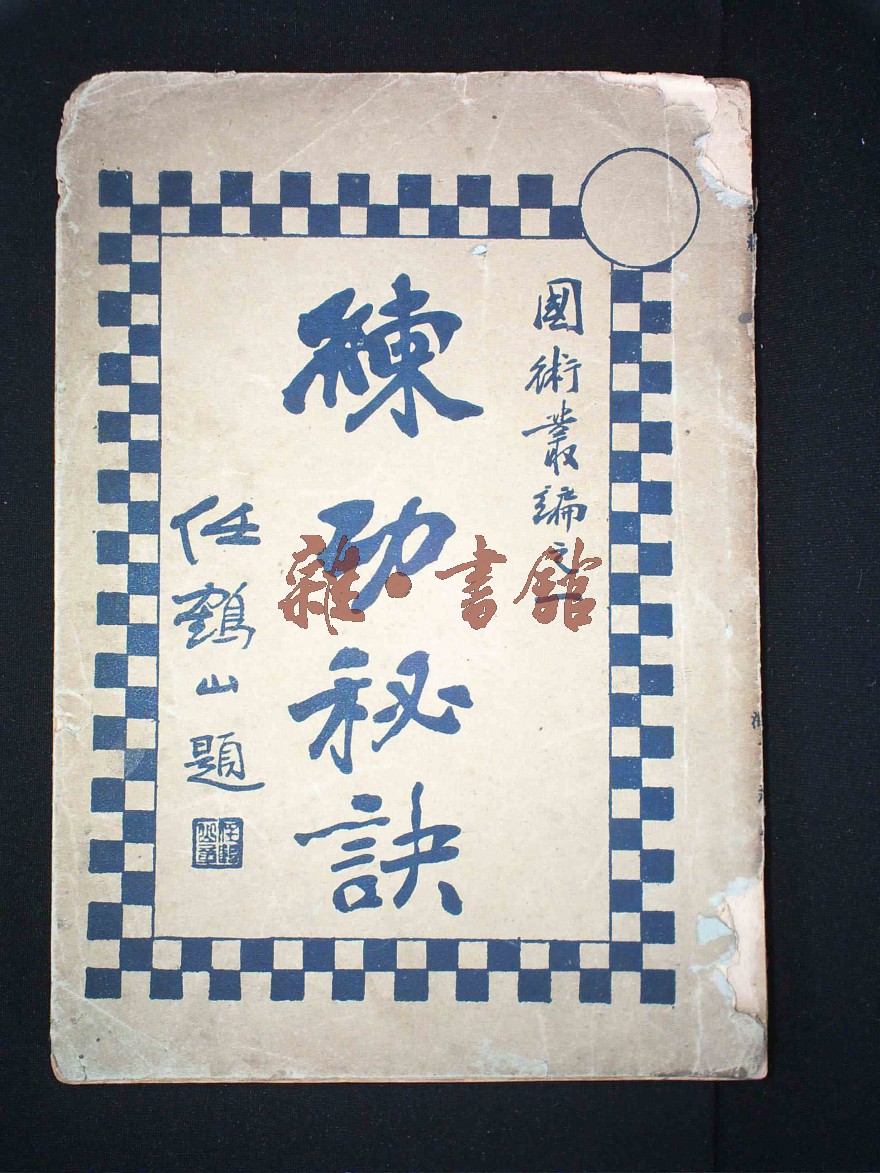 國術叢編之一
練功秘訣
任鶴山題
雜·書館